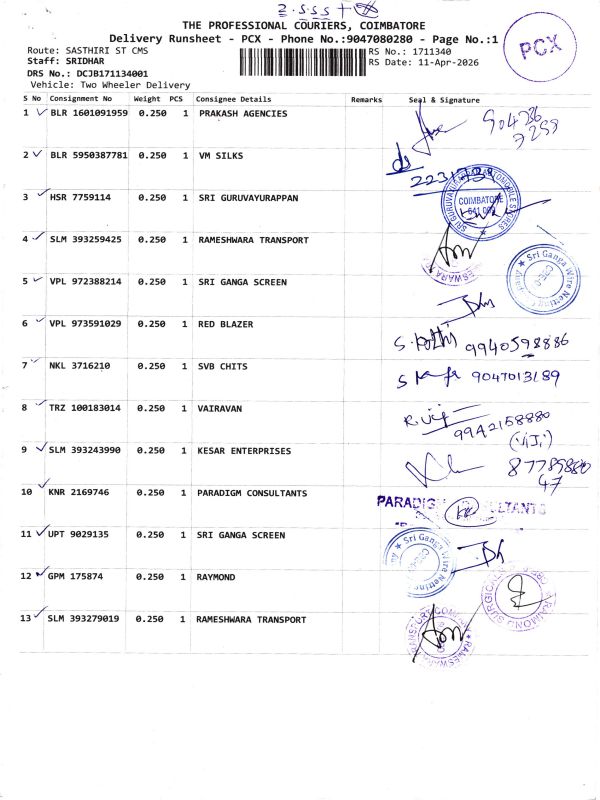 2.555 +
THE PROFESSIONAL COURIERS, COIMBATORE
Delivery Runsheet - PCX - Phone No.:9047080280 - Page No.:1
PCX
Route: SASTHIRI ST CMS RS No.: 1711340
Staff: SRIDHAR RS Date: 11-Apr-2026
DRS No.: DCJB171134001
Vehicle: Two Wheeler Delivery
S No Consignment No Weight PCS Consignee Details Remarks Seal & Signature
1 BLR 1601091959 0.250 1 PRAKASH AGENCIES
2 BLR 5950387781 0.250 1 VM SILKS
3 HSR 7759114 0.250 1 SRI GURUVAYURAPPAN COIMBATORE
4 SLM 393259425 0.250 1 RAMESHWARA TRANSPORT
5 VPL 972388214 0.250 1 SRI GANGA SCREEN Sri Ganga Wire Netting
6 VPL 973591029 0.250 1 RED BLAZER 9940598886
7 NKL 3716210 0.250 1 SVB CHITS 9047013189
8 TRZ 100183014 0.250 1 VAIRAVAN 9942158880
(VIJI)
9 SLM 393243990 0.250 1 KESAR ENTERPRISES
47
10 KNR 2169746 0.250 1 PARADIGM CONSULTANTS
11 UPT 9029135 0.250 1 SRI GANGA SCREEN Sri Ganga Wire
12 GPM 175874 0.250 1 RAYMOND
13 SLM 393279019 0.250 1 RAMESHWARA TRANSPORT